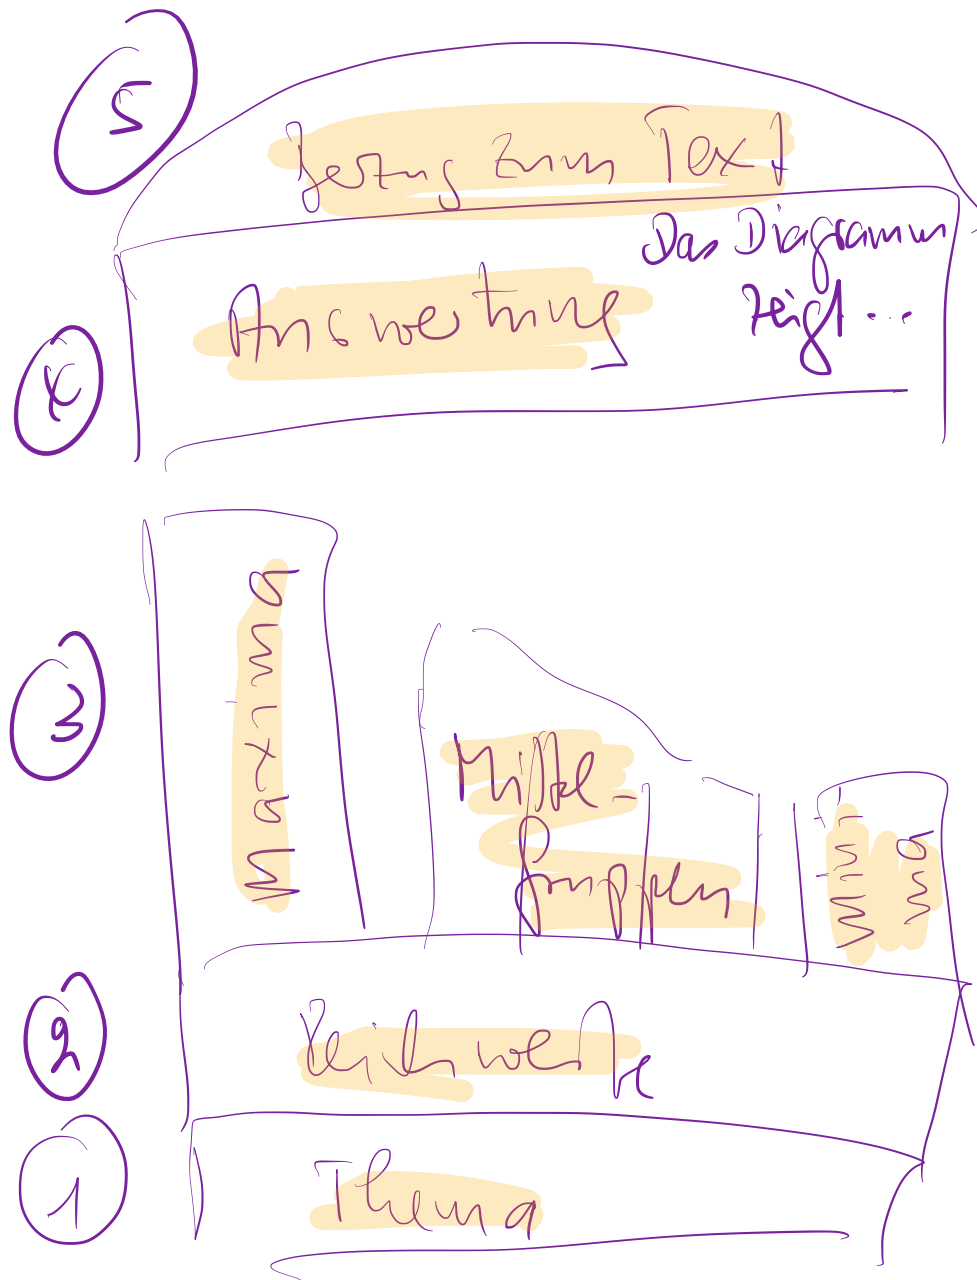 5
Bezug zum Text
Das Diagramm
zeigt ...
4
Auswertung
3
Maxima
Mittel-
gruppen
Mini
ma
2
1
Thema